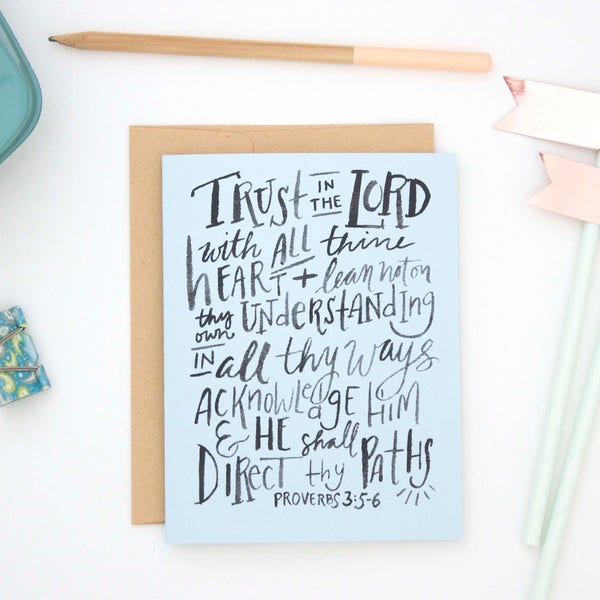 TRUST IN THE LORD
with ALL thine
HEART + lean not on
thy own UNDERSTANDING
IN all thy ways
ACKNOWLEDGE HIM
& HE shall
DIRECT thy PATHS
PROVERBS 3:5-6